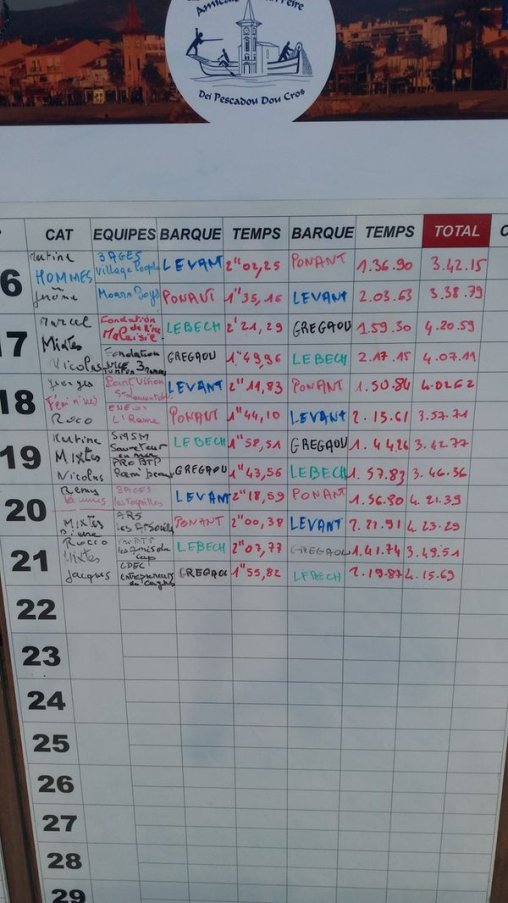 Dei Pescadou Dou Cros
CAT EQUIPES BARQUE TEMPS BARQUE TEMPS TOTAL
6 HOMMES 3 AGES Village People LEVANT 2"02,25 PONANT 1.36.90 3.42.15
PONANT 1"35,16 LEVANT 2.03.63 3.38.79
17 Marcel Fondation de l'île Malaisie LEBECH 2'21,29 GREGAOU 1.59.30 4.20.59
Mixtes Nicolas Fondation GREGAOU 1"49,96 LEBECH 2.17.15 4.07.11
18 Georges LEVANT 2"11,83 PONANT 1.50.84 4.02.62
Féminines Roco L'Rame PONANT 1"44,10 LEVANT 2.15.61 3.57.71
19 SMSM Sauveteur en mer LEBECH 1"58,51 GREGAOU 1.44.26 3.42.77
MIXTES Nicolas PRO BTP GREGAOU 1"43,56 LEBECH 1.57.83 3.46.36
20 Remy 3AGES LEVANT 2"18,59 PONANT 1.56.80 4.21.39
MIXTES ARS PONANT 2"00,38 LEVANT 2.21.91 4.23.29
21 Rocco Mixtes les Amis du Cap LEBECH 2"07,77 GREGAOU 1.41.74 3.49.51
Jacques CDEC Entrepreneurs de Cagnes GREGAOU 1"55,82 LEBECH 2.19.87 4.15.69
22
23
24
25
26
27
28
29